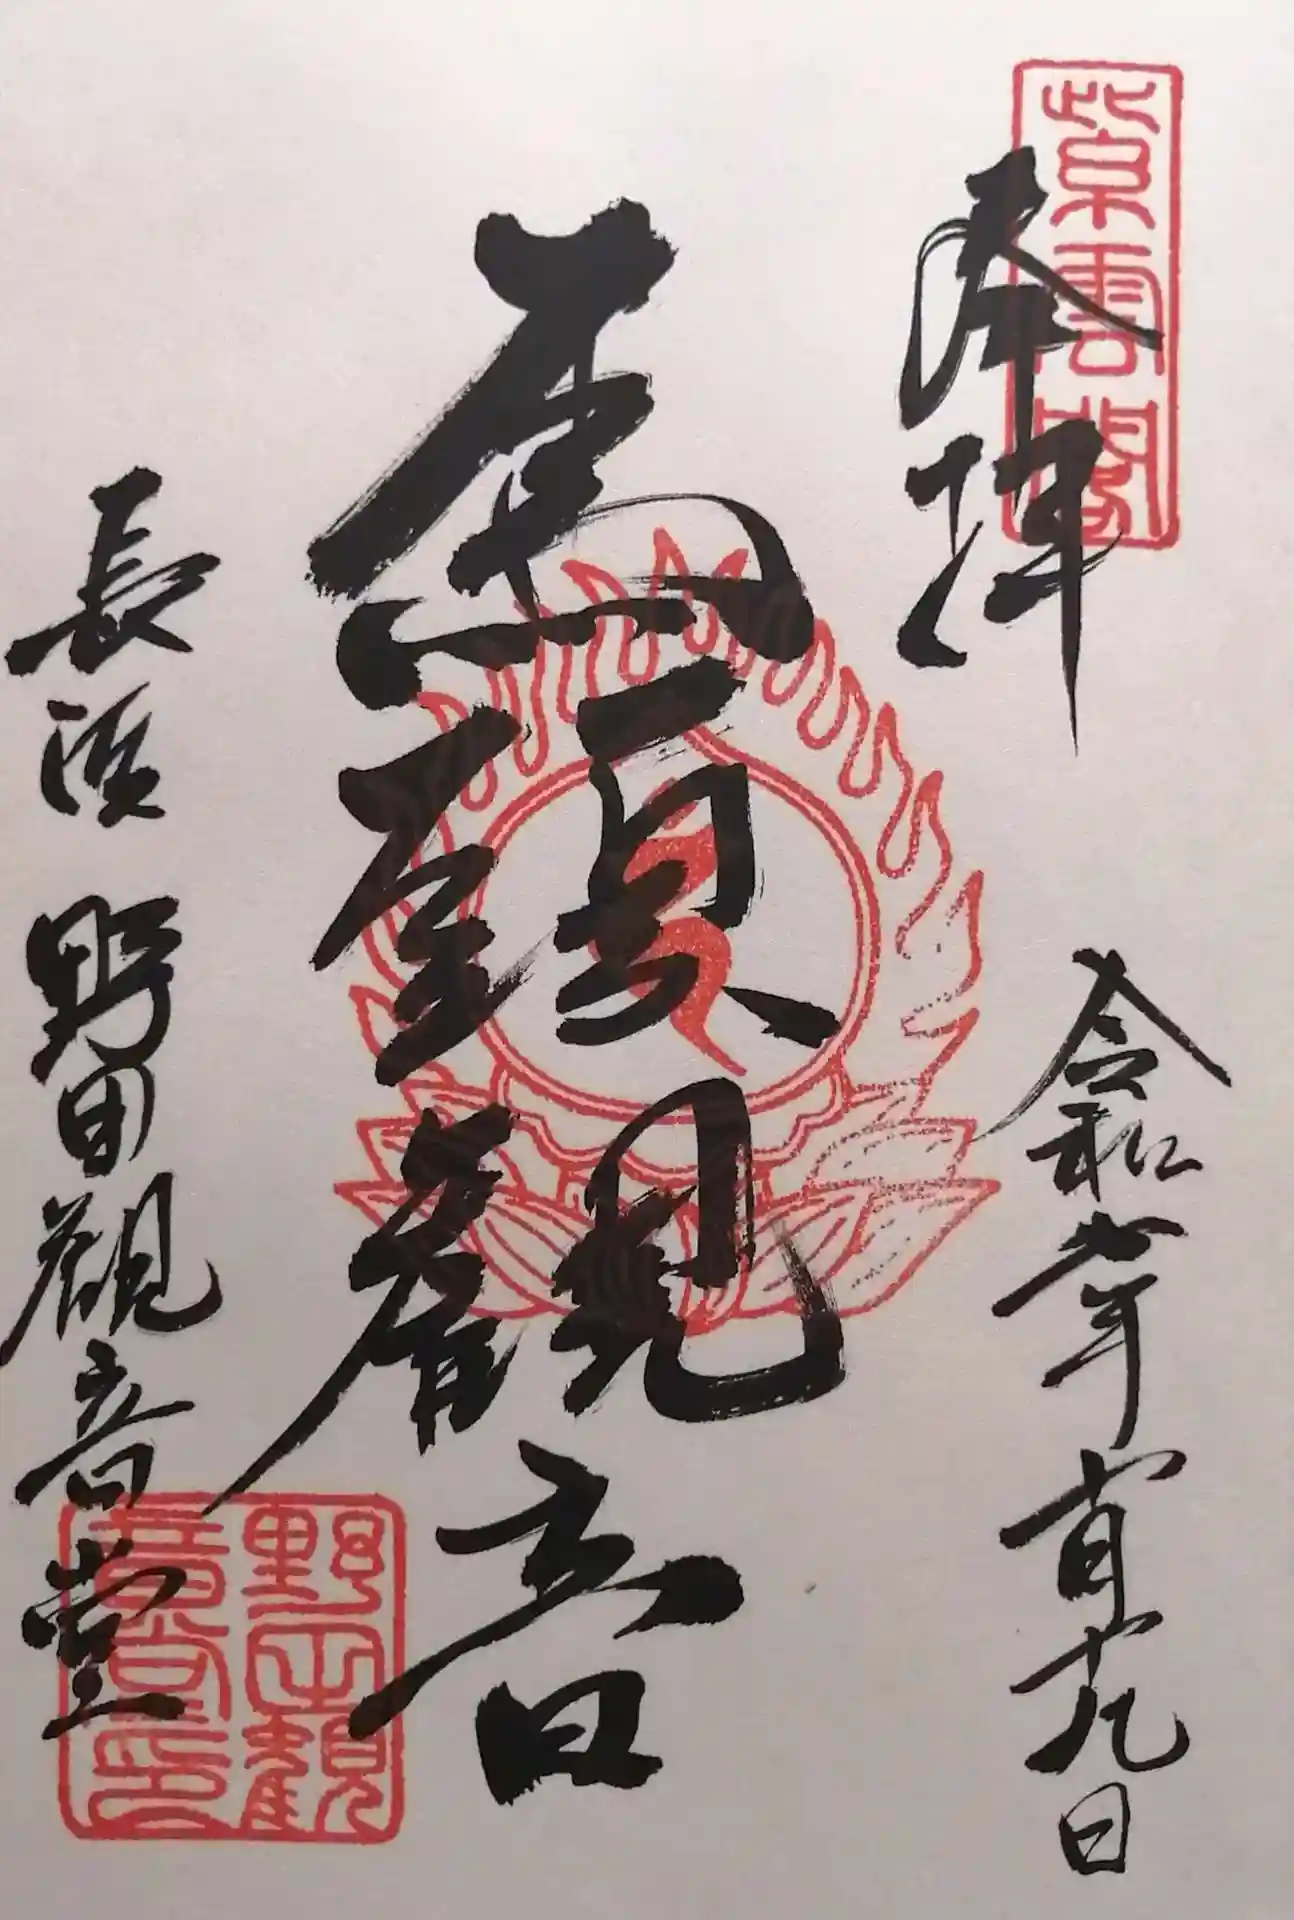 紫雲閣
奉拝
令和 年 月十九日
馬頭觀音
長浜 野田観音堂
野田觀
音堂印